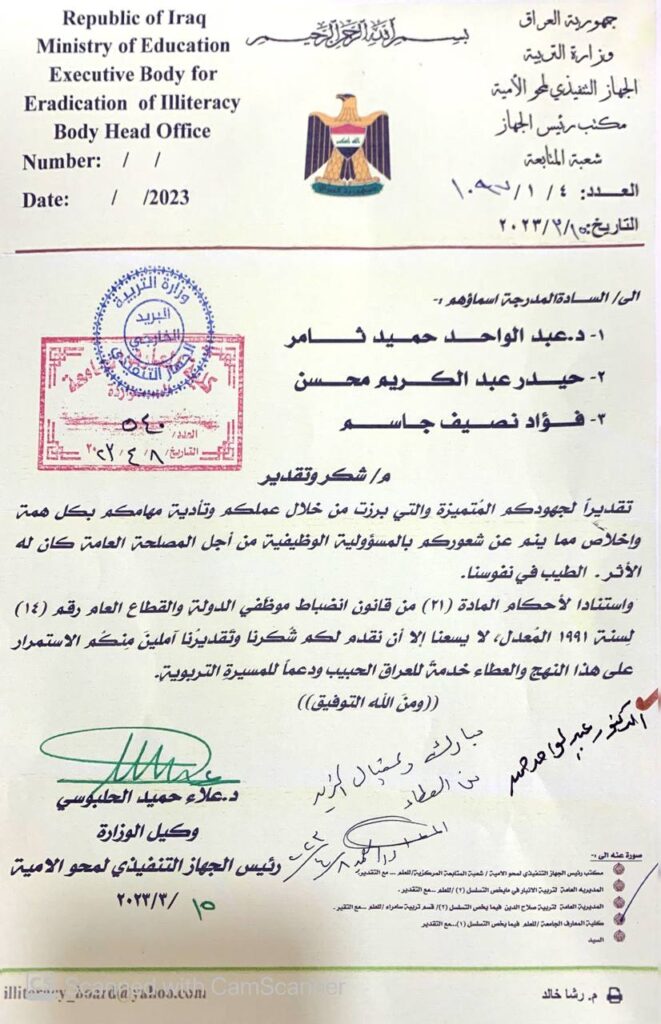 Republic of Iraq
Ministry of Education
Executive Body for
Eradication of Illiteracy
Body Head Office
Number: / /
Date: / /2023
بسم الله الرحمن الرحيم
جمهورية العراق
وزارة التربية
الجهاز التنفيذي لمحو الأمية
مكتب رئيس الجهاز
شعبة المتابعة
العدد: ٤ / ١ /
التاريخ: ١٥/٣/٢٠٢٣
وزارة التربية
البريد
الخارجي
الجهاز التنفيذي
العدد/ ٥٤٠
التاريخ/ ٨/٤/٢٠٢٣
الى/ السادة المدرجة اسماؤهم :-
١- د.عبد الواحد حميد ثامر
٢- حيدر عبد الكريم محسن
٣- فؤاد نصيف جاسم
م/ شكر وتقدير
تقديراً لجهودكم المُتميزة والتي برزت من خلال عملكم وتأدية مهامكم بكل همة
وإخلاص مما ينم عن شعوركم بالمسؤولية الوظيفية من أجل المصلحة العامة كان له
الأثر . الطيب في نفوسنا.
واستنادا لأحكام المادة (٢١) من قانون انضباط موظفي الدولة والقطاع العام رقم (١٤)
لِسنة ١٩٩١ المُعدل، لا يسعنا إلا أن نقدم لكم شُكرنا وتَقديرُنا آملينَ مِنكُم الاستمرار
على هذا النهج والعطاء خدمةً للعراق الحبيب ودعماً للمسيرة التربوية.
((ومنَ الله التوفيق))
الدكتور عبد الواحد حميد
مبارك
المزيد
من العطاء
٨/٤/٢٠٢٣
د.علاء حميد الحلبوسي
وكيل الوزارة
رئيس الجهاز التنفيذي لمحو الامية
١٥ /٢٠٢٣/٣
صورة عنه الى :-
مكتب رئيس الجهاز التنفيذي لمحو الامية / شعبة المتابعة المركزية/للعلم ... مع التقدير.
المديرية العامة لتربية الانبار في مايخص التسلسل (٢) /للعلم ..مع التقدير.
المديرية العامة لتربية صلاح الدين فيما يخص التسلسل (٢)/ قسم تربية سامراء /للعلم ..مع التقدير.
كلية المعارف الجامعة /للعلم فيما يخص التسلسل (١)...مع التقدير
السيد
illiteracy_board@yahoo.com
Scanned with CamScanner
م. رشا خالد